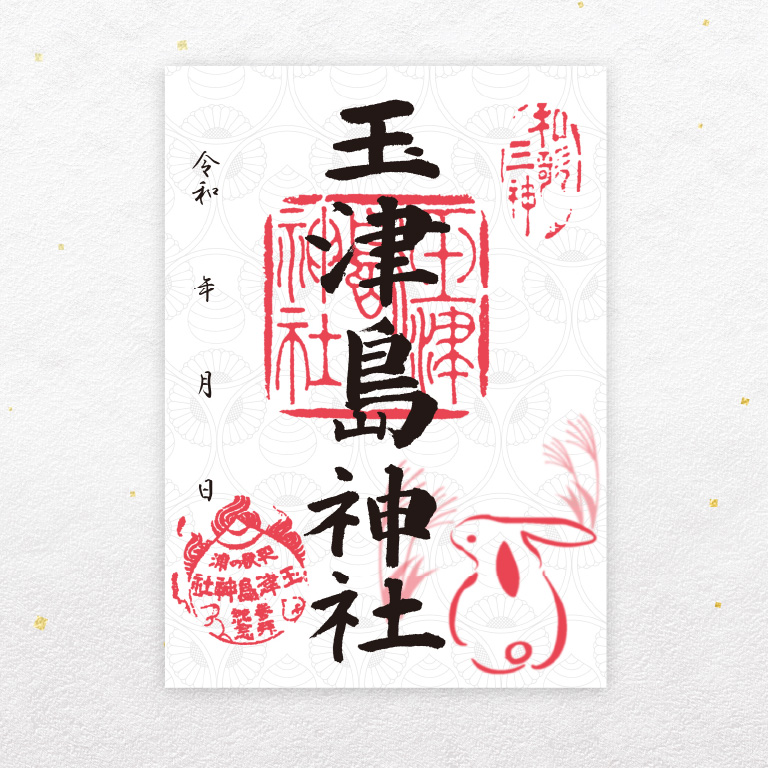 和歌
三神
玉津島神社
玉津
島
神社
令和 年 月 日
和歌の浦
玉津島神社
参拝
記念